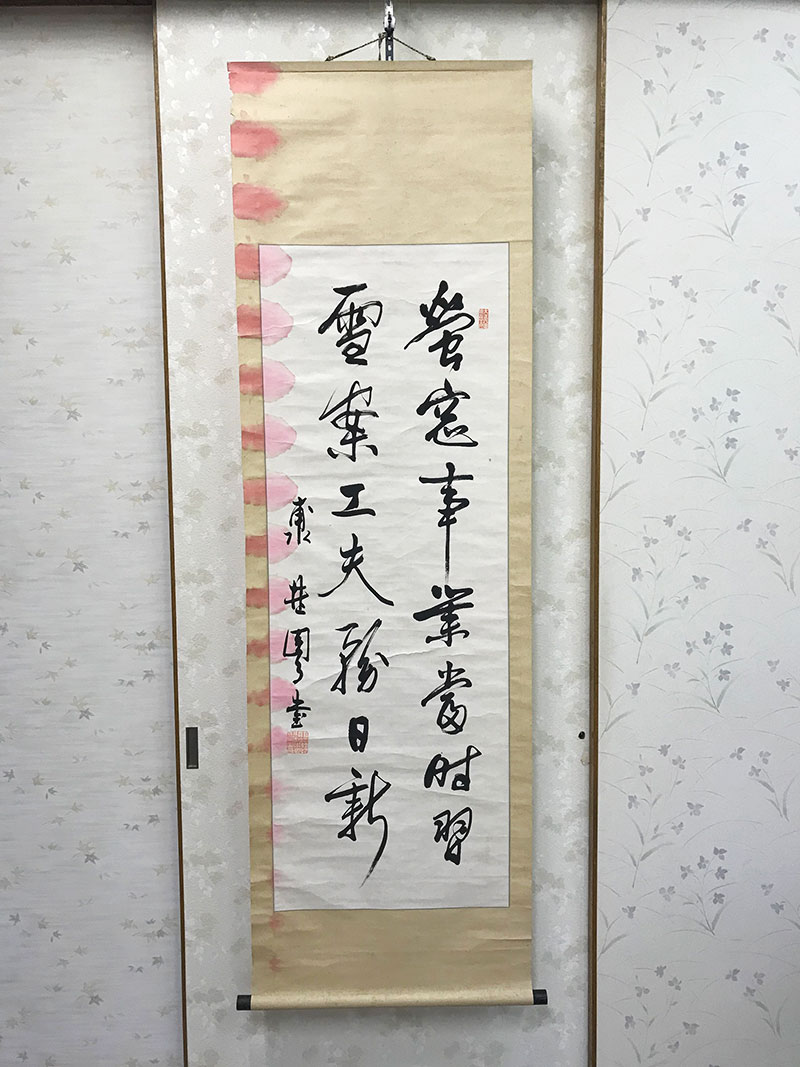 螢窓事業當時習
雪案工夫務日新